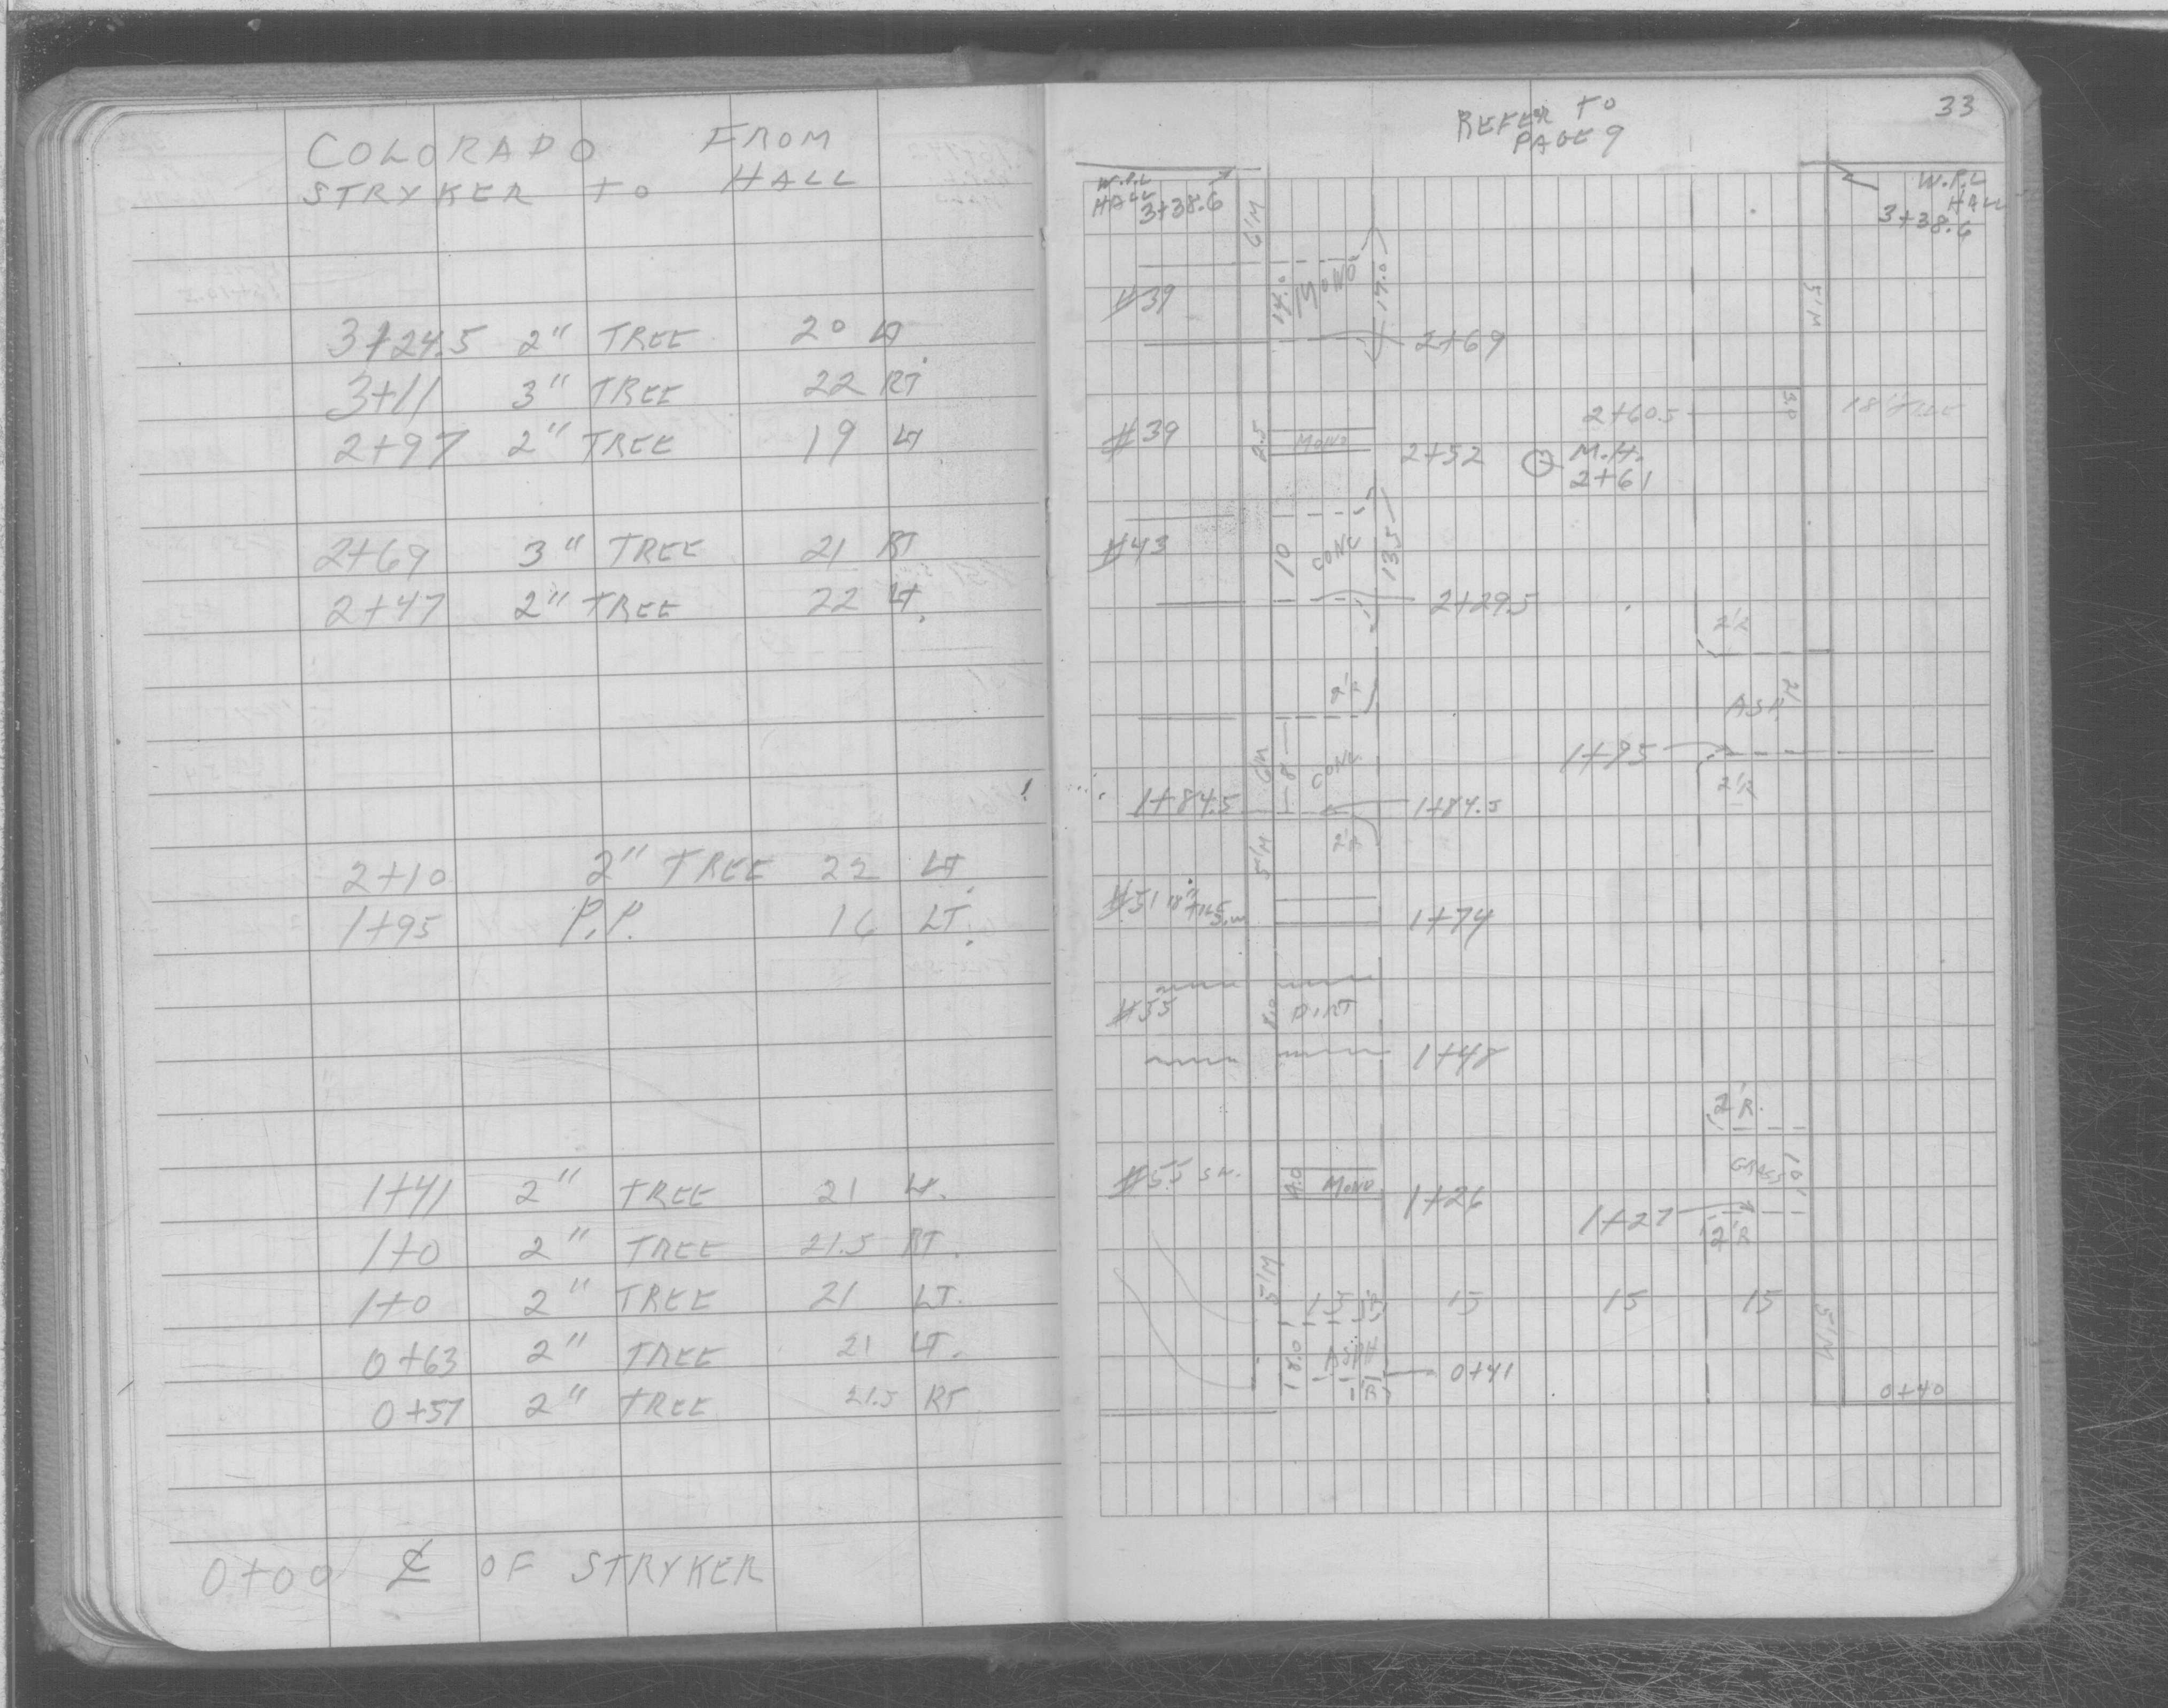 COLORADO FROM
STRYKER TO HALL
3+24.5 2" TREE 20 LT.
3+11 3" TREE 22 RT
2+97 2" TREE 19 LT
2+69 3" TREE 21 RT
2+47 2" TREE 22 LT.
2+10 2" TREE 22 LT.
1+95 P.P. 16 LT.
1+41 2" TREE 21 LT.
1+0 2" TREE 21.5 RT.
1+0 2" TREE 21 LT.
0+63 2" TREE 21 LT.
0+57 2" TREE 21.5 RT
0+00 ℄ OF STRYKER
33
REFER TO
PAGE 9
W.P.L
HALL
3+38.6
6'M
W.P.L
HALL
3+38.6
#39
14.0
MONO
17.0
5'M
2+69
#39
MONO
2+52
2+60.5
3.0
M.H.
2+61
#43
10
CONC
13.5
2+29.5
2'R
2'R
ASP.
6'M
8
CONC
1+95
2'R
1+84.5
1+84.5
5'M
2'R
#51 18" TILE
S.W
1+74
#55
8.0
DIRT
1+48
2'R.
#55 SW.
4.0
MONO
1+26
GRASS
10'
1+27
2'R
5'M
15
15
15
15
5'M
18.0
ASPH
1'R
0+41
0+40